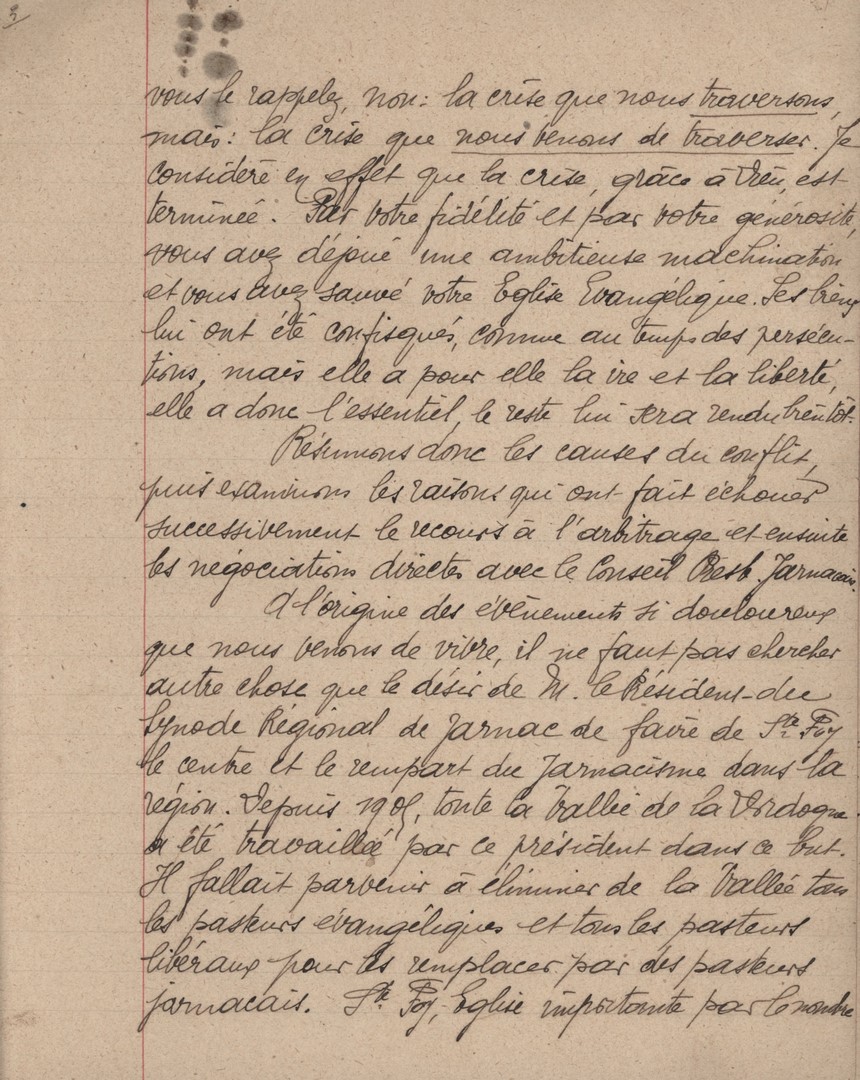 vous le rappelez, non: la crise que nous traversons,
mais: la crise que nous venons de traverser. Je
considère en effet que la crise, grâce à Dieu, est
terminée. Par votre fidélité et par votre générosité,
vous avez déjoué une ambitieuse machination
et vous avez sauvé votre Eglise Evangélique. Ses biens
lui ont été confisqués, comme au temps des persécu-
tions, mais elle a pour elle la vie et la liberté,
elle a donc l'essentiel, le reste lui sera rendu bientôt.
Résumons donc les causes du conflit,
puis examinons les raisons qui ont fait échouer
successivement le recours à l'arbitrage et ensuite
les négociations directes avec le Conseil Presb. Jarnacais.
A l'origine des évènements si douloureux
que nous venons de vivre, il ne faut pas chercher
autre chose que le désir de M. le Président du
Synode Régional de Jarnac de faire de Ste Foy
le centre et le rempart du Jarnacisme dans la
région. Depuis 1905, toute la Vallée de la Dordogne
a été travaillée par ce président dans ce but.
Il fallait parvenir à éliminer de la Vallée tous
les pasteurs évangéliques et tous les pasteurs
libéraux pour les remplacer par des pasteurs
jarnacais. Ste Foy, Eglise importante par le nombre